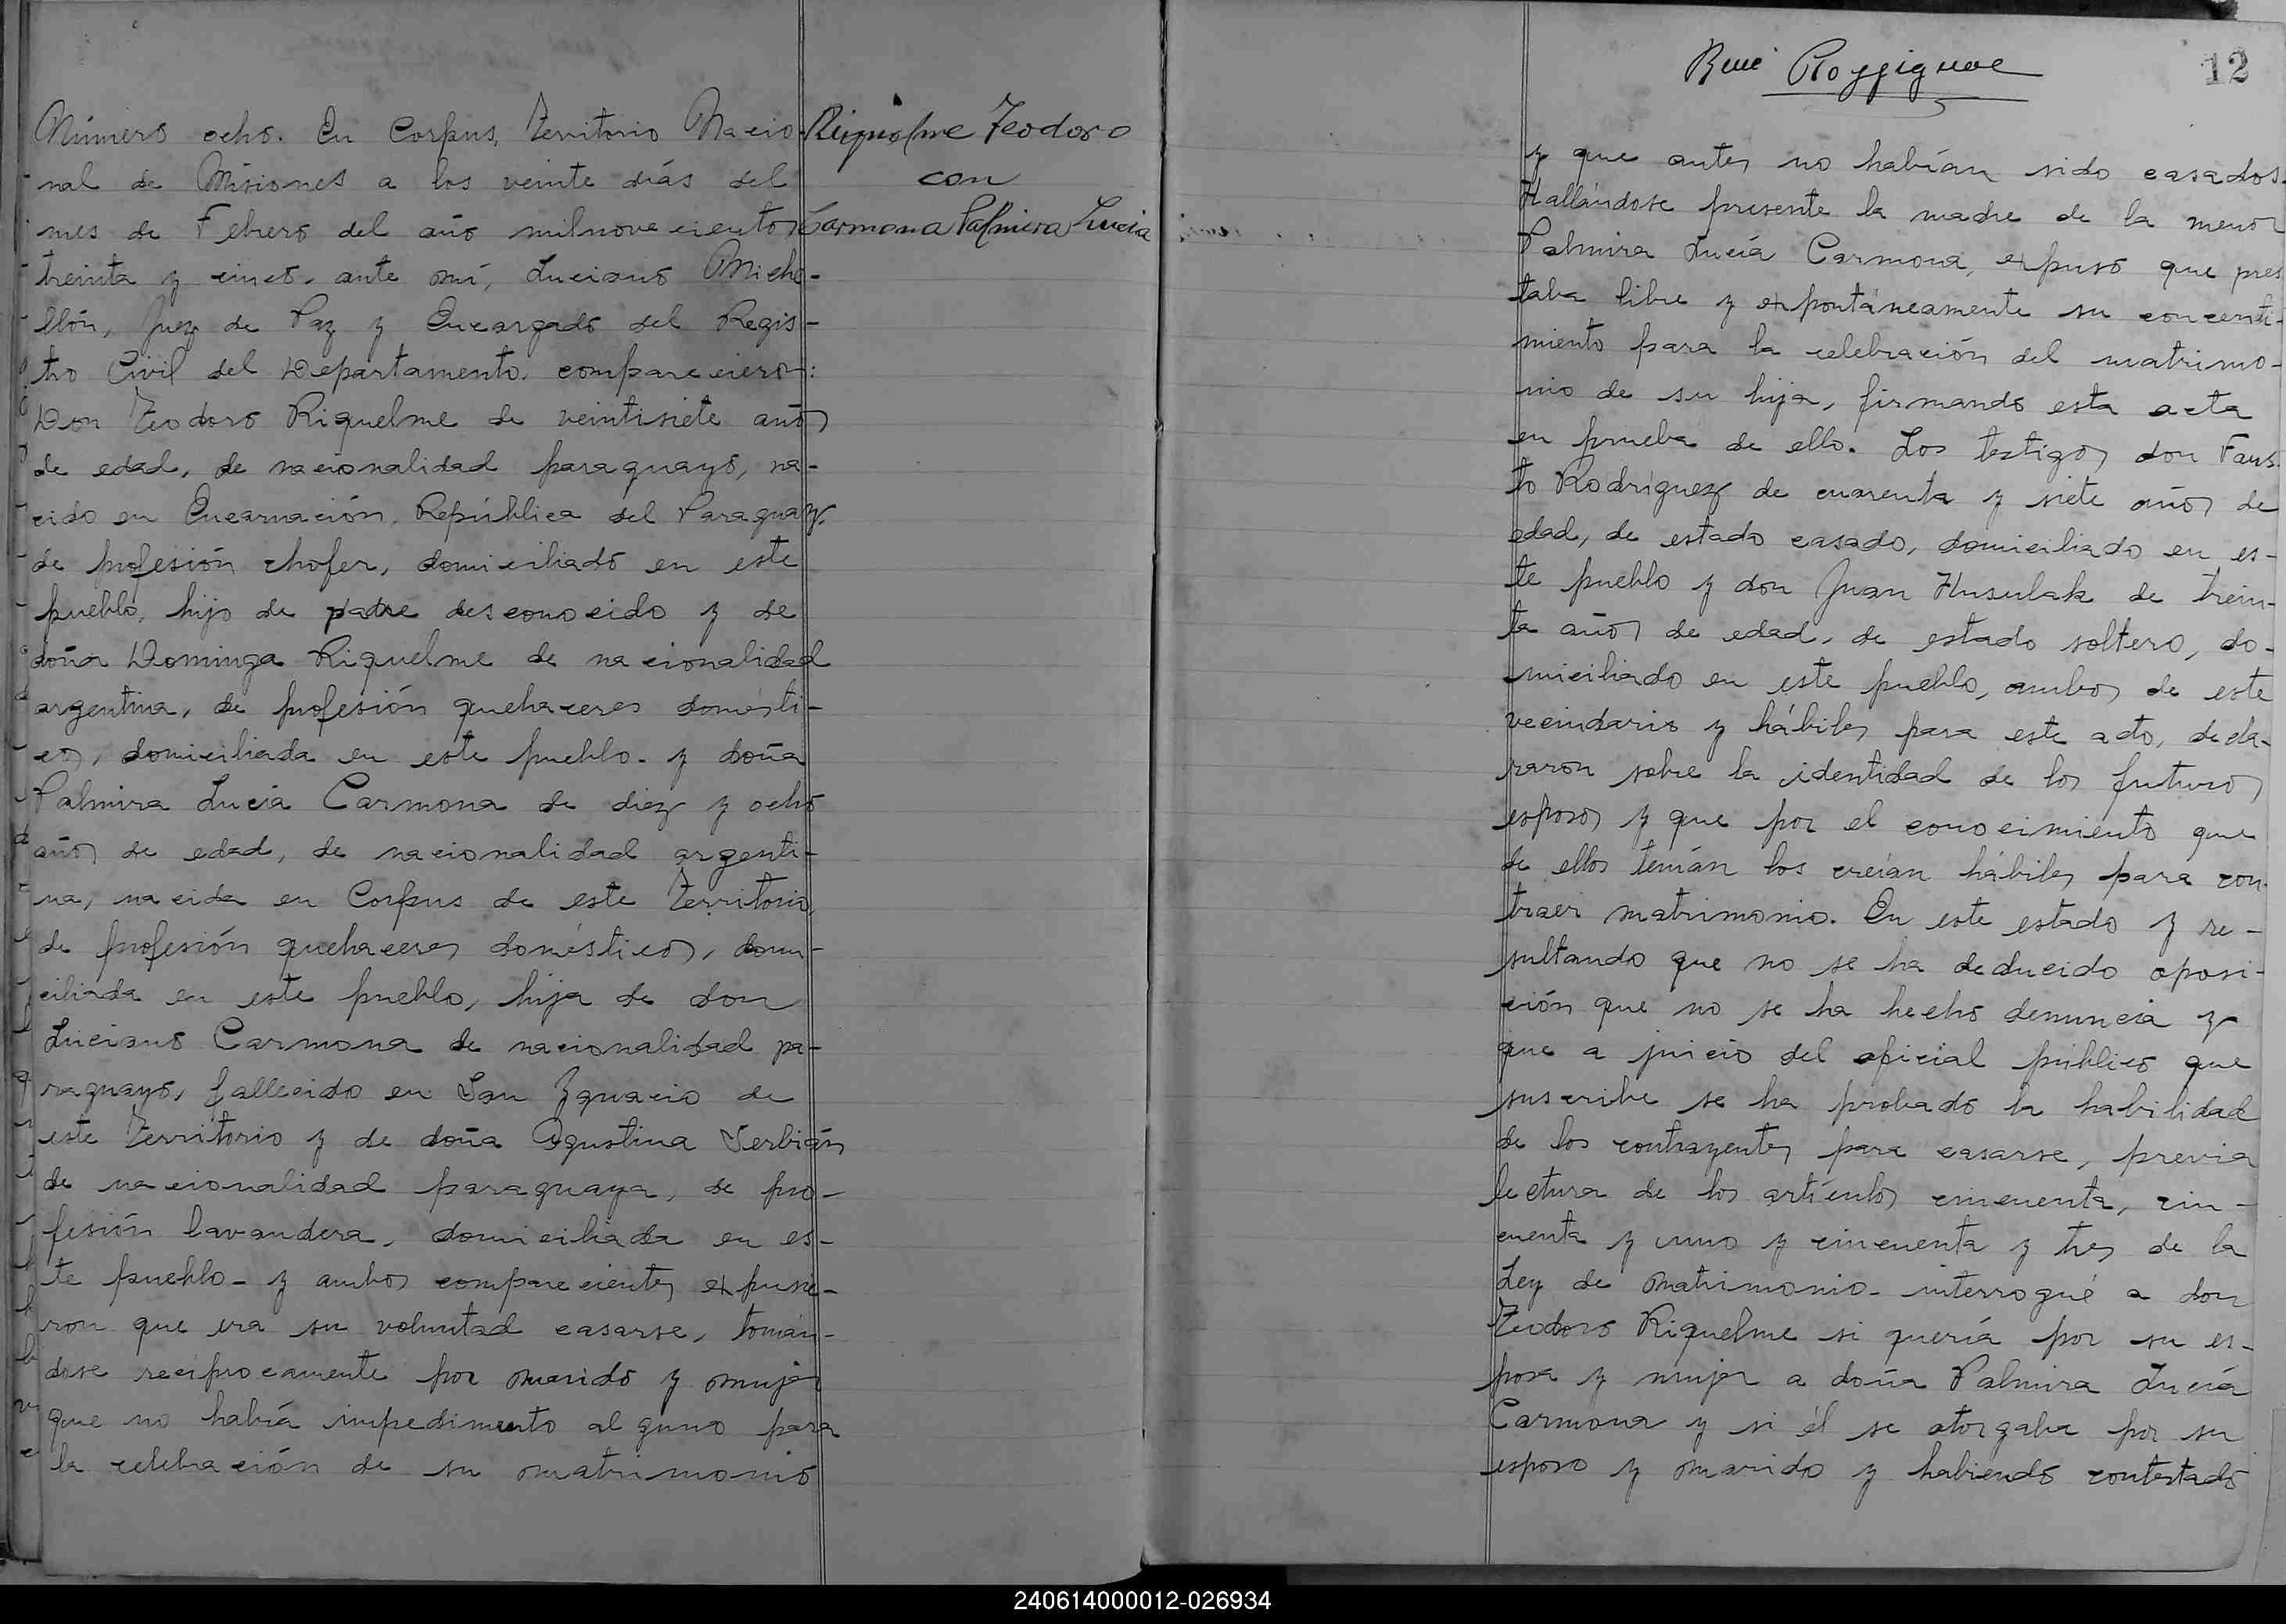 Número ocho. En Corpus, Territorio Nacio-
nal de Misiones a los veinte días del
mes de Febrero del año milnovecientos
treinta y cinco, ante mí, Luciano Miche-
llón, Juez de Paz y Encargado del Regis-
tro Civil del Departamento, comparecieron:
Don Teodoro Riquelme de veintisiete años
de edad, de nacionalidad paraguayo, na-
cido en Encarnación, República del Paraguay,
de profesión chofer, domiciliado en este
pueblo, hijo de padre desconocido y de
doña Dominga Riquelme de nacionalidad
argentina, de profesión quehaceres domésti-
cos, domiciliada en este pueblo. y doña
Palmira Lucía Carmona de diez y ocho
años de edad, de nacionalidad argenti-
na, nacida en Corpus de este Territorio,
de profesión quehaceres domésticos, domi-
ciliada en este pueblo, hija de don
Luciano Carmona de nacionalidad pa-
raguayo, fallecido en San Ygnacio de
este Territorio y de doña Agustina Serbián
de nacionalidad paraguaya, de pro-
fesión lavandera, domiciliada en es-
te pueblo- y ambos comparecientes expusie-
ron que era su voluntad casarse, tomán-
dose reciprocamente por marido y mujer
que no había impedimento alguno para
la celebración de su matrimonio
Riquelme Teodoro
con
Carmona Palmira Lucia
12
y que antes no habían sido casados.
Hallándose presente la madre de la menor
Palmira Lucía Carmona, expuso que pres
taba libre y expontáneamente su concenti-
miento para la celebración del matrimo-
nio de su hija, firmando esta acta
en prueba de ello. Los testigos don Faus-
to Rodríguez de cuarenta y siete años de
edad, de estado casado, domiciliado en es-
te pueblo y don Juan Husulak de trein-
ta años de edad, de estado soltero, do-
miciliado en este pueblo, ambos de este
vecindario y hábiles para este acto, decla-
raron sobre la identidad de los futuros
esposos y que por el conocimiento que
de ellos tenían los creían hábiles para con-
traer matrimonio. En este estado y re-
sultando que no se ha deducido oposi-
ción que no se ha hecho denuncia y
que a juicio del oficial público que
suscribe se ha probado la habilidad
de los contrayentes para casarse, previa
lectura de los artículos cincuenta, cin-
cuenta y uno y cincuenta y tres de la
Ley de Matrimonio- interrogué a don
Teodoro Riquelme si quería por su es-
posa y mujer a doña Palmira Lucía
Carmona y si él se otorgaba por su
esposo y marido y habiendo contestado
240614000012-026934